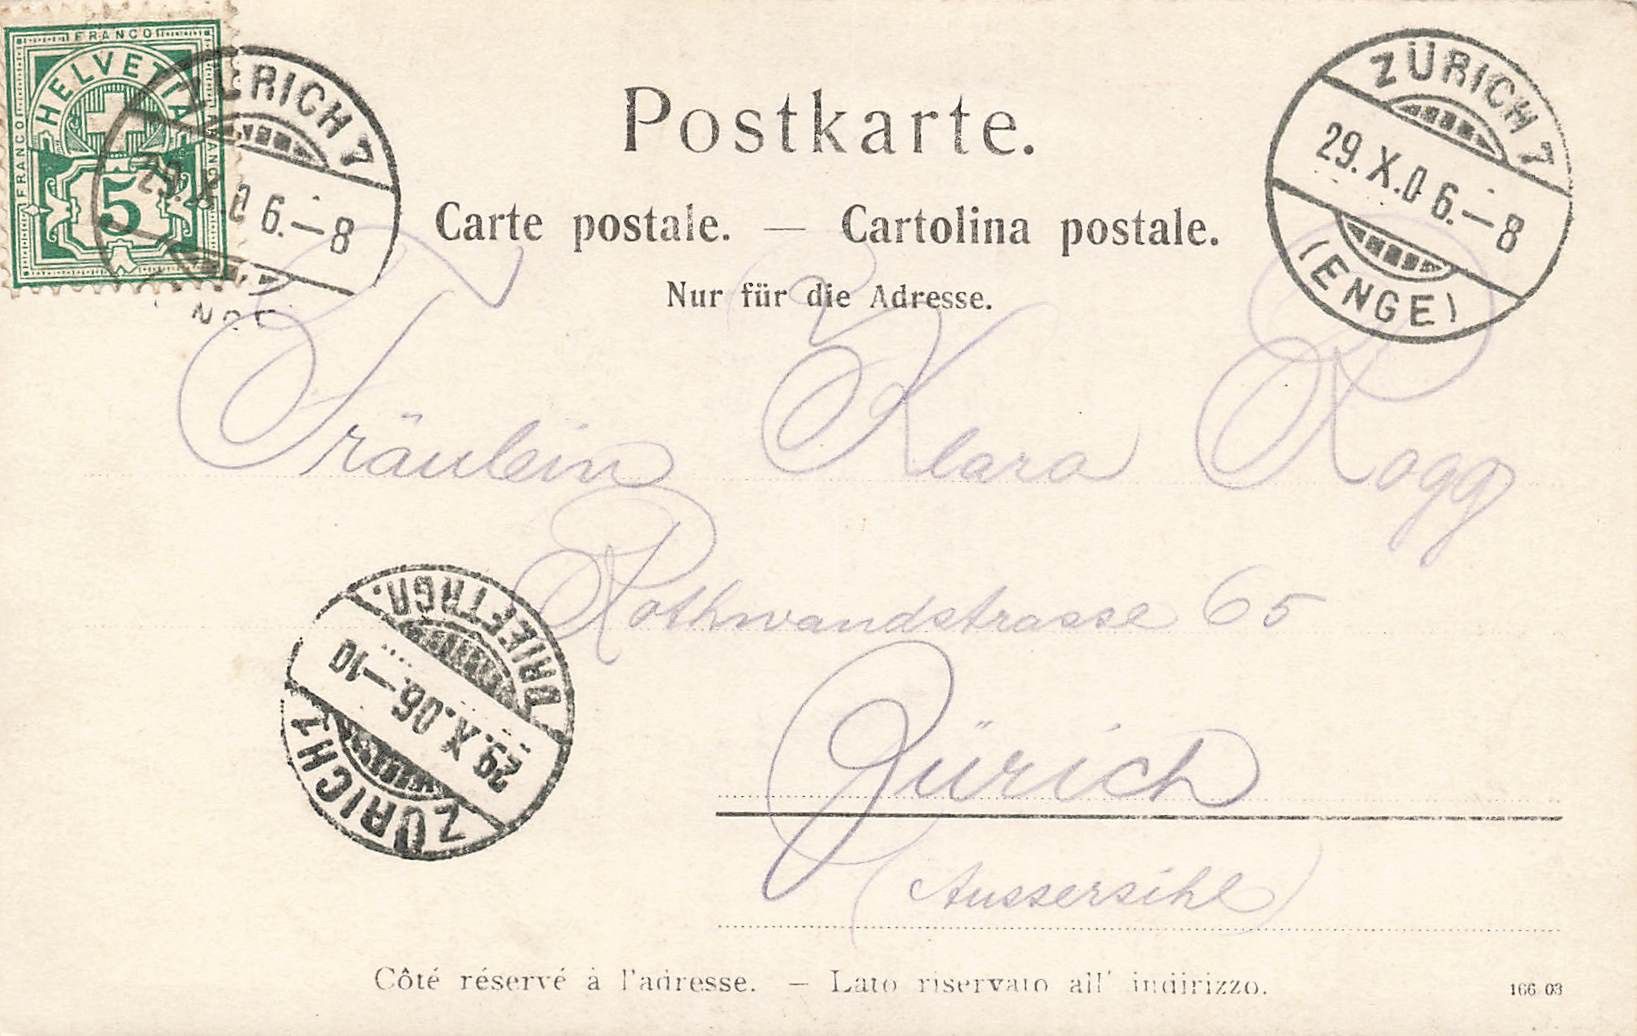 FRANCO
HELVETIA
FRANCO
FRANCO
5
ZÜRICH 7
29.X.06.–8
Postkarte.
ZÜRICH 7
29.X.06.–8
(ENGE)
Carte postale. — Cartolina postale.
Nur für die Adresse.
Fräulein Klara Rogg
Rothwandstrasse 65
Zürich
(Aussersihl)
ZÜRICH 7
29.X.06.–10
BRIEFTRGR.
Côté réservé à l'adresse. — Lato riservato all' indirizzo.
166 03